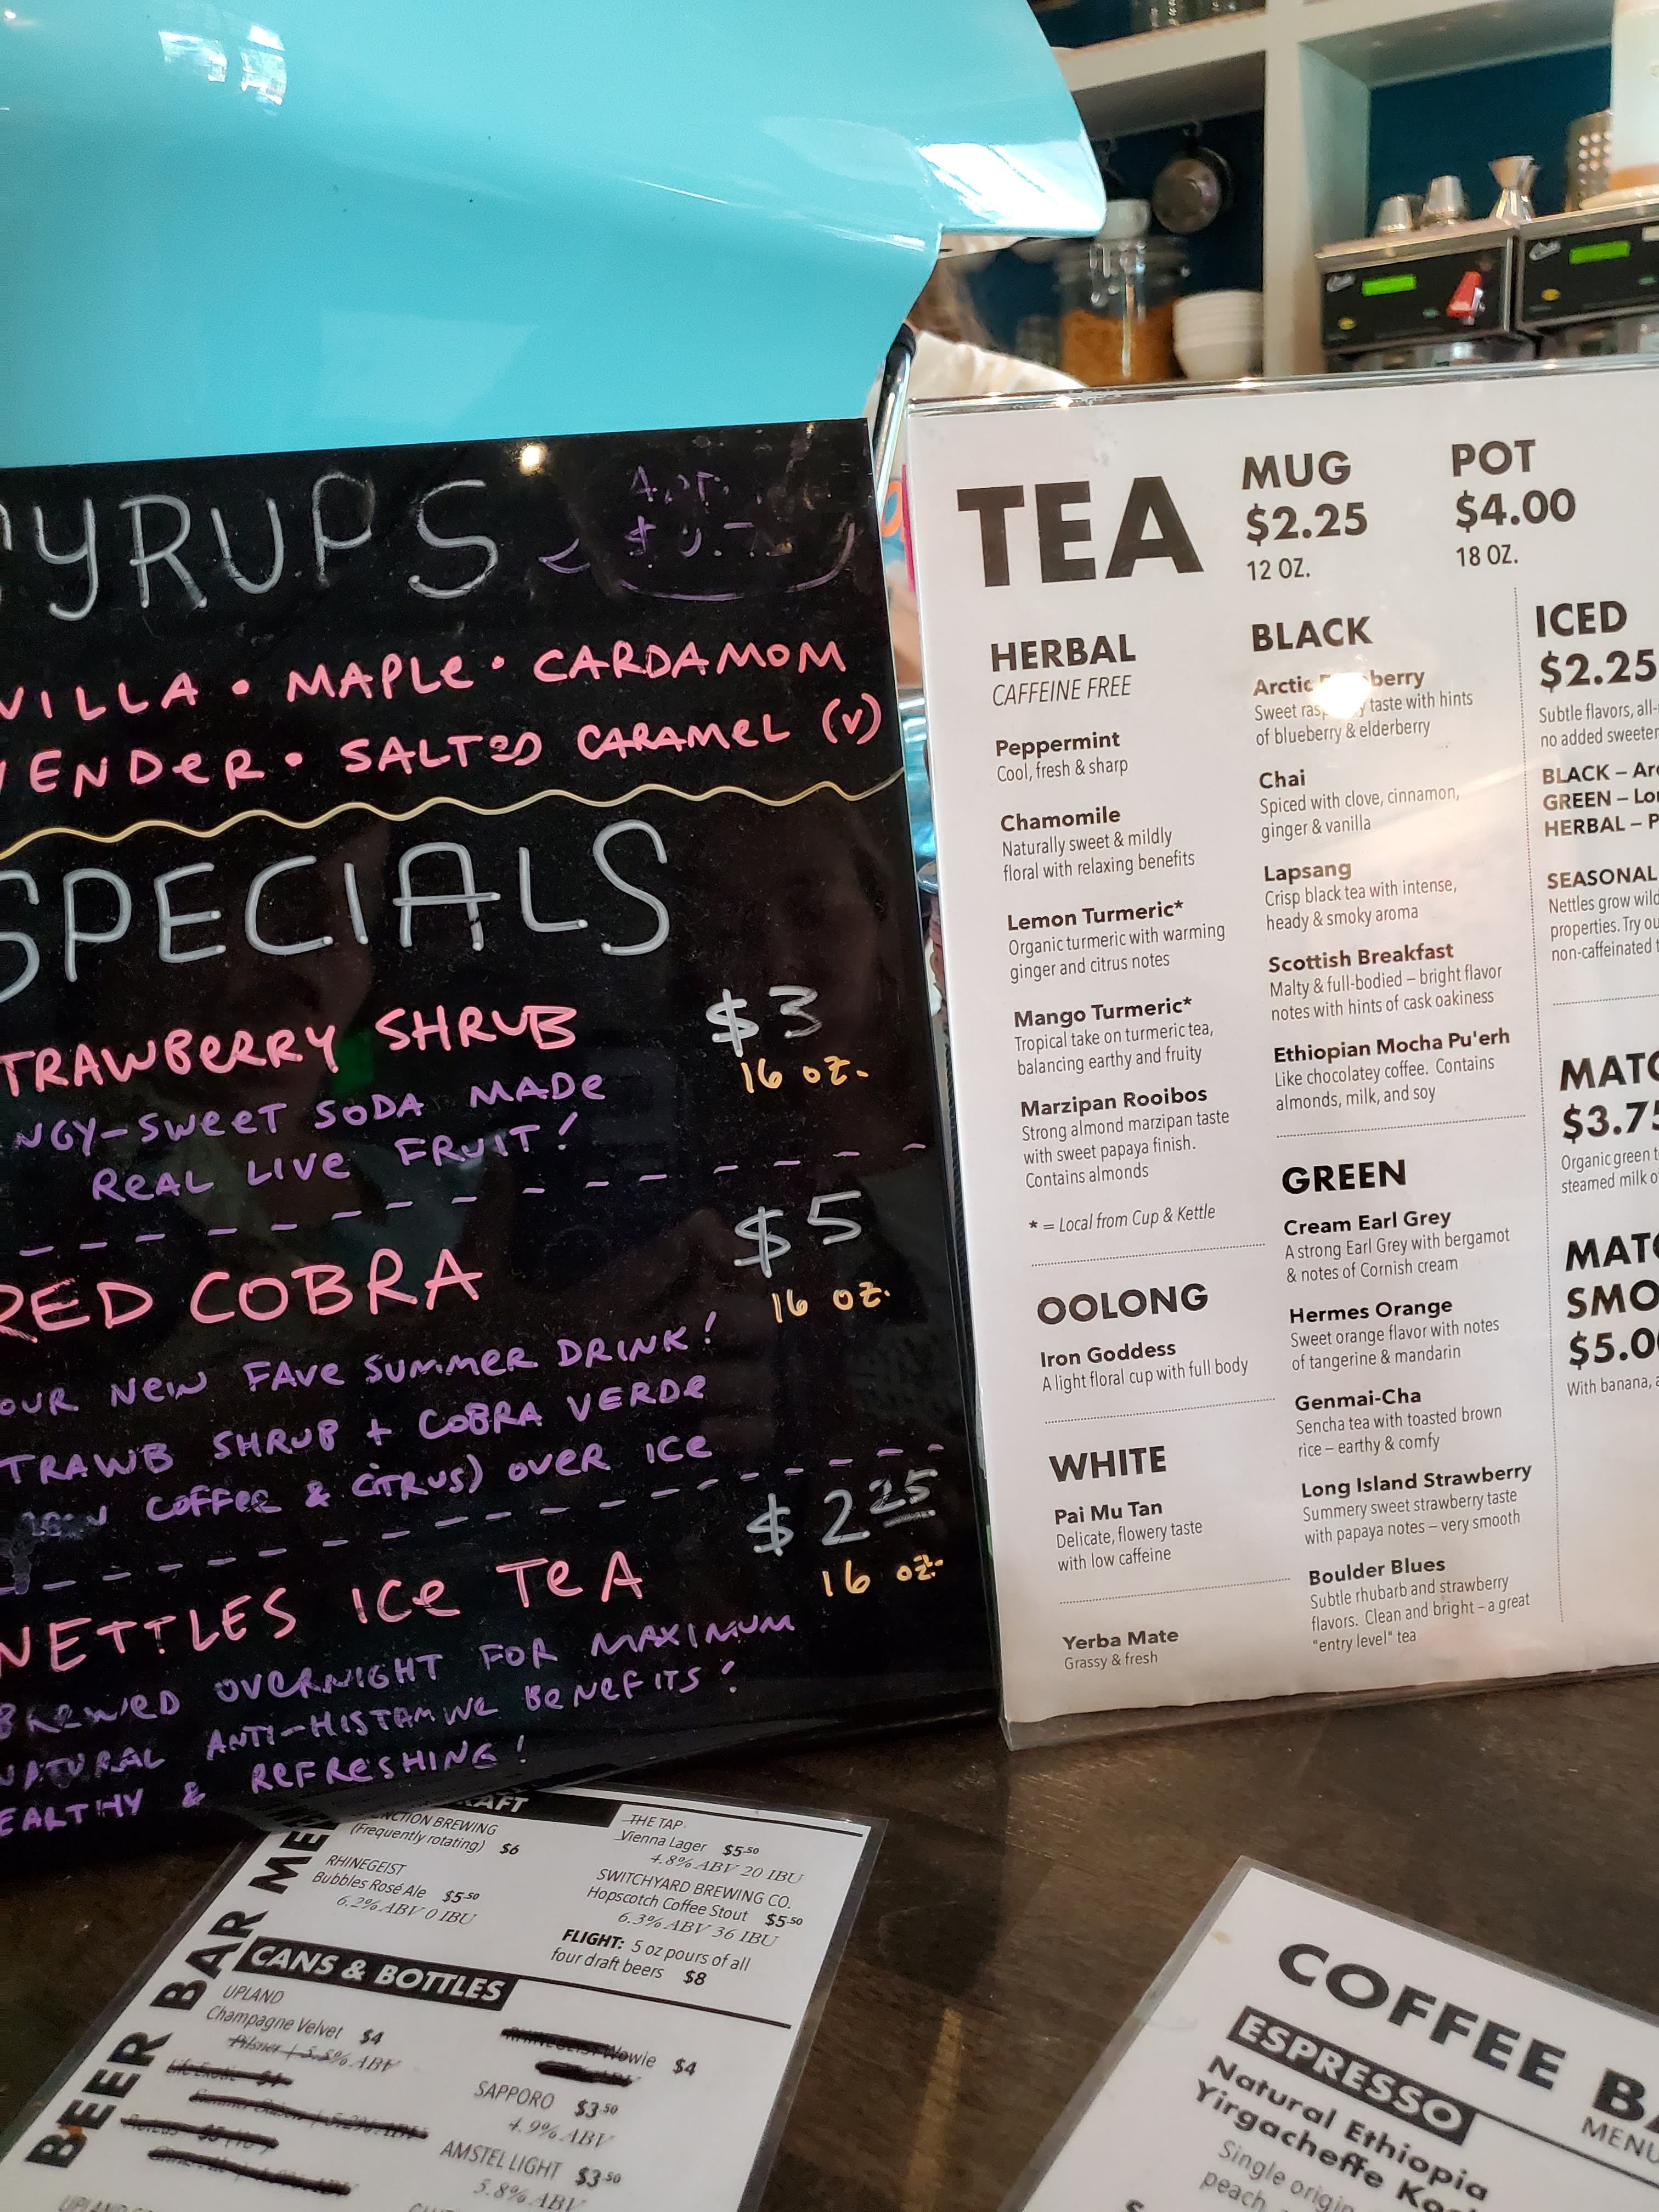 SYRUPS
VILLA • MAPLE • CARDAMOM
VENDER • SALTED CARAMEL (V)
SPECIALS
TRAWBERRY SHRUB $3
16 OZ.
NGY-SWEET SODA MADE
REAL LIVE FRUIT!
RED COBRA $5
16 OZ.
OUR NEW FAVE SUMMER DRINK!
TRAWB SHRUB + COBRA VERDE
COFFEE & CITRUS) OVER ICE
NETTLES ICE TEA $2.25
16 OZ.
BREWED OVERNIGHT FOR MAXIMUM
NATURAL ANTI-HISTAMINE BENEFITS!
EALTHY & REFRESHING!
TEA
MUG
$2.25
12 OZ.
POT
$4.00
18 OZ.
HERBAL
CAFFEINE FREE
Peppermint
Cool, fresh & sharp
Chamomile
Naturally sweet & mildly
floral with relaxing benefits
Lemon Turmeric*
Organic turmeric with warming
ginger and citrus notes
Mango Turmeric*
Tropical take on turmeric tea,
balancing earthy and fruity
Marzipan Rooibos
Strong almond marzipan taste
with sweet papaya finish.
Contains almonds
* = Local from Cup & Kettle
OOLONG
Iron Goddess
A light floral cup with full body
WHITE
Pai Mu Tan
Delicate, flowery taste
with low caffeine
Yerba Mate
Grassy & fresh
BLACK
Arctic
Sweet taste with hints
of blueberry & elderberry
Chai
Spiced with clove, cinnamon,
ginger & vanilla
Lapsang
Crisp black tea with intense,
heady & smoky aroma
Scottish Breakfast
Malty & full-bodied – bright flavor
notes with hints of cask oakiness
Ethiopian Mocha Pu'erh
Like chocolatey coffee. Contains
almonds, milk, and soy
GREEN
Cream Earl Grey
A strong Earl Grey with bergamot
& notes of Cornish cream
Hermes Orange
Sweet orange flavor with notes
of tangerine & mandarin
Genmai-Cha
Sencha tea with toasted brown
rice – earthy & comfy
Long Island Strawberry
Summery sweet strawberry taste
with papaya notes – very smooth
Boulder Blues
Subtle rhubarb and strawberry
flavors. Clean and bright – a great
"entry level" tea
ICED
$2.25
Subtle flavors, all-
no added sweeter
BLACK – Arc
GREEN – Lon
HERBAL – P
SEASONAL
Nettles grow wild
properties. Try ou
non-caffeinated t
MATC
$3.75
Organic green t
steamed milk o
MATC
SMO
$5.00
With banana, a
BEER BAR MEN
RAFT
NCTION BREWING
(Frequently rotating) $6
RHINEGEIST
Bubbles Rosé Ale $5.50
6.2% ABV 0 IBU
THE TAP
Vienna Lager $5.50
4.8% ABV 20 IBU
SWITCHYARD BREWING CO.
Hopscotch Coffee Stout $5.50
6.3% ABV 36 IBU
FLIGHT: 5 oz pours of all
four draft beers $8
CANS & BOTTLES
UPLAND
Champagne Velvet $4
Pilsner | 5.5% ABV
Wowie $4
SAPPORO $3.50
4.9% ABV
AMSTEL LIGHT $3.50
5.8% ABV
COFFEE BA
MENU
ESPRESSO
Natural Ethiopia
Yirgacheffe Ko
Single origin
peach